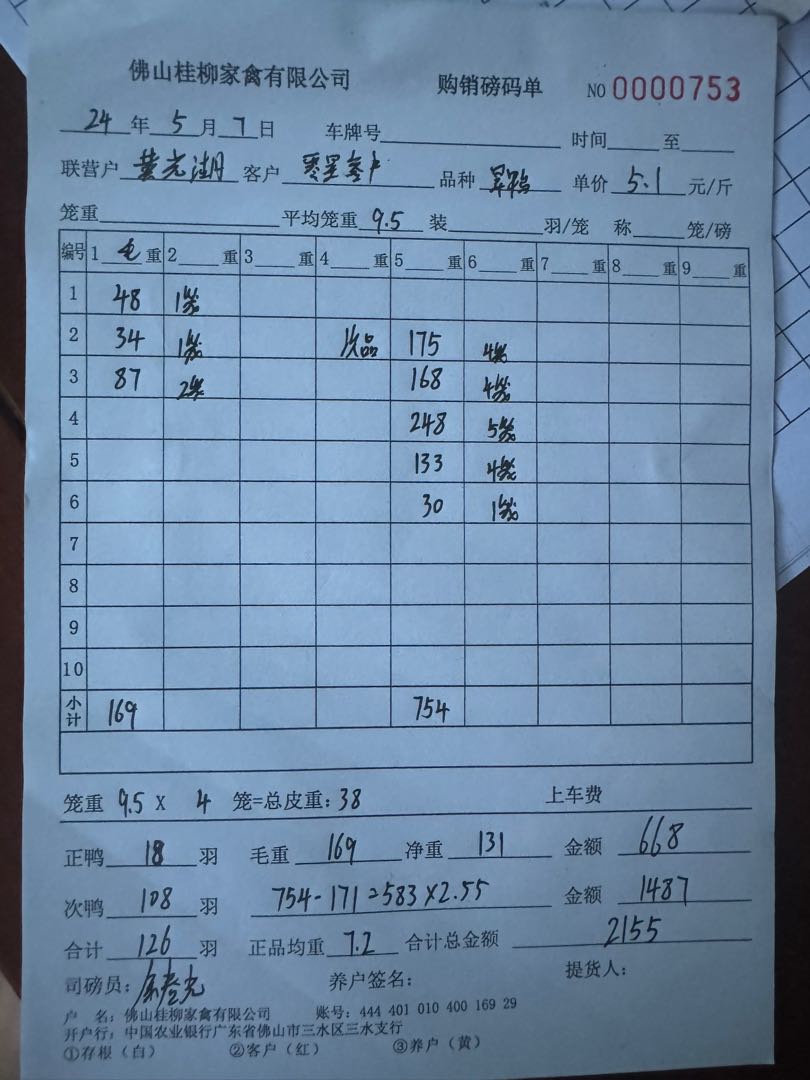 佛山桂柳家禽有限公司 购销磅码单 NO 0000753
24 年 5 月 7 日 车牌号 时间 至
联营户 黄光湖 客户 零星客户 品种 单价 5.1 元/斤
笼重 平均笼重 9.5 装 羽/笼 称 笼/磅
编号 1 毛 重 2 重 3 重 4 重 5 重 6 重 7 重 8 重 9 重
1 48 1笼
2 34 1笼 次品 175 4笼
3 87 2笼 168 4笼
4 248 5笼
5 133 4笼
6 30 1笼
7
8
9
10
小计 169 754
笼重 9.5 X 4 笼=总皮重: 38 上车费
正鸭 18 羽 毛重 169 净重 131 金额 668
次鸭 108 羽 754-171=583×2.55 金额 1487
合计 126 羽 正品均重 7.2 合计总金额 2155
司磅员: 养户签名: 提货人:
户 名: 佛山桂柳家禽有限公司 账号: 444 401 010 400 169 29
开户行: 中国农业银行广东省佛山市三水区三水支行
①存根(白) ②客户(红) ③养户(黄)